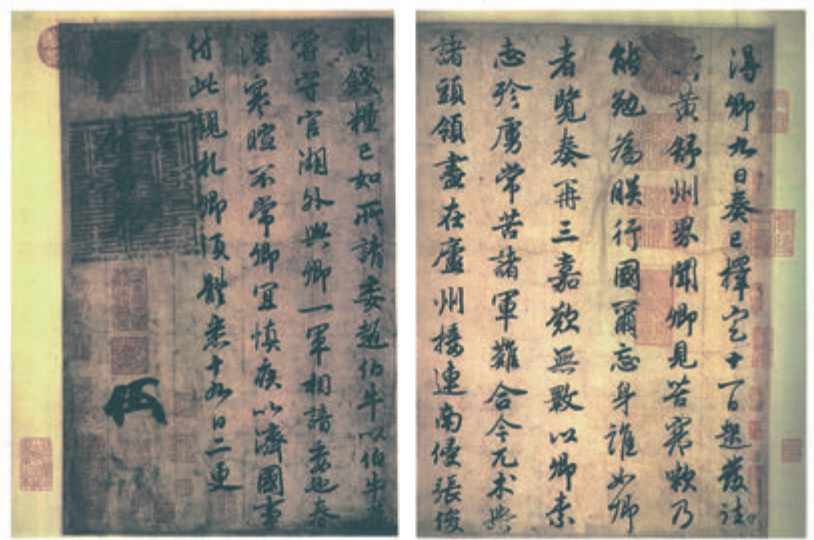 得卿九日奏已擇定十一日起發往
蘄黃舒州界聞卿見苦寒嗽乃
能勉為朕行國爾忘身誰如卿
者覽奏再三嘉歎無斁以卿素
志殄虜常苦諸軍難合今兀术與
諸頭領盡在廬州接連南侵張俊
到錢糧已如所請委趙伯牛以伯牛舊
嘗守官湖外與卿一軍相諳委也春
深寒暄不常卿宜慎疾以濟國事
付此親札卿須體悉十九日二更
付岳飛